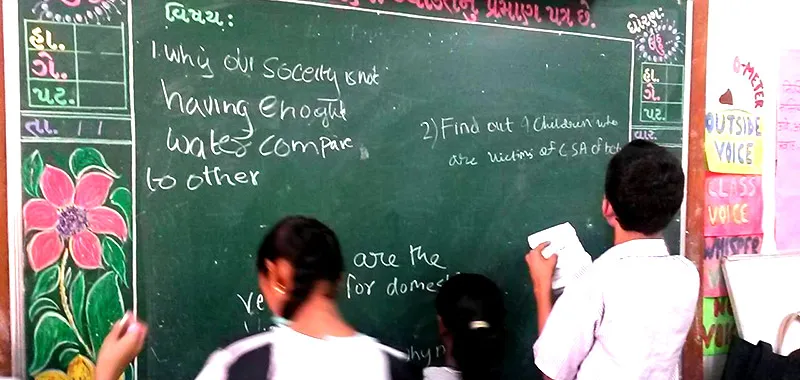 વિષય:
પ્રમાણ પત્ર છે.
હા.
ગે.
પટ.
તા. / /
1. why our socerity is not
having enoght
water compare
to other
2) Find out 9 children who
are victims of CSA of
are the
for domes
હા.
ગે.
પટ.
વાર.
O-METER
OUTSIDE
VOICE
CLASS
VOICE
WHISPER
VOICE